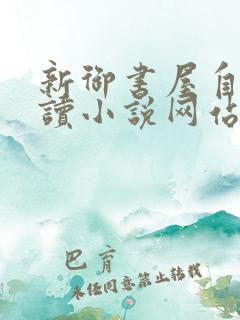 新御書屋自
讀小说网站
巴育
未经同意禁止转载